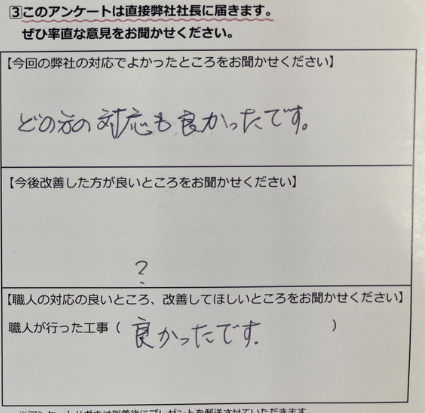 3 このアンケートは直接弊社社長に届きます。
ぜひ率直な意見をお聞かせください。
【今回の弊社の対応でよかったところをお聞かせください】
どの方の対応も良かったです。
【今後改善した方が良いところをお聞かせください】
?
【職人の対応の良いところ、改善してほしいところをお聞かせください】
職人が行った工事（ 良かったです. ）